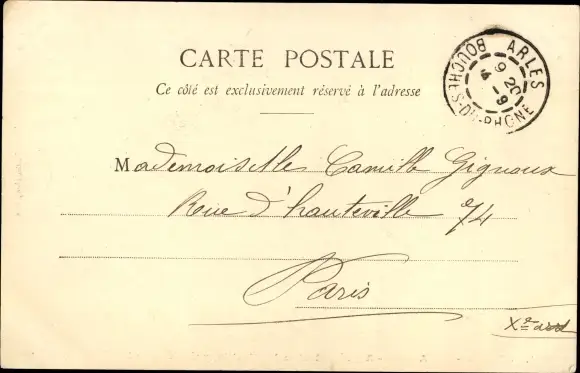 CARTE POSTALE
Ce côté est exclusivement réservé à l'adresse
ARLES
BOUCHES-DU-RHONE
Mademoiselle Camille Gignoux
Rue d'hauteville 74
Paris
Xe